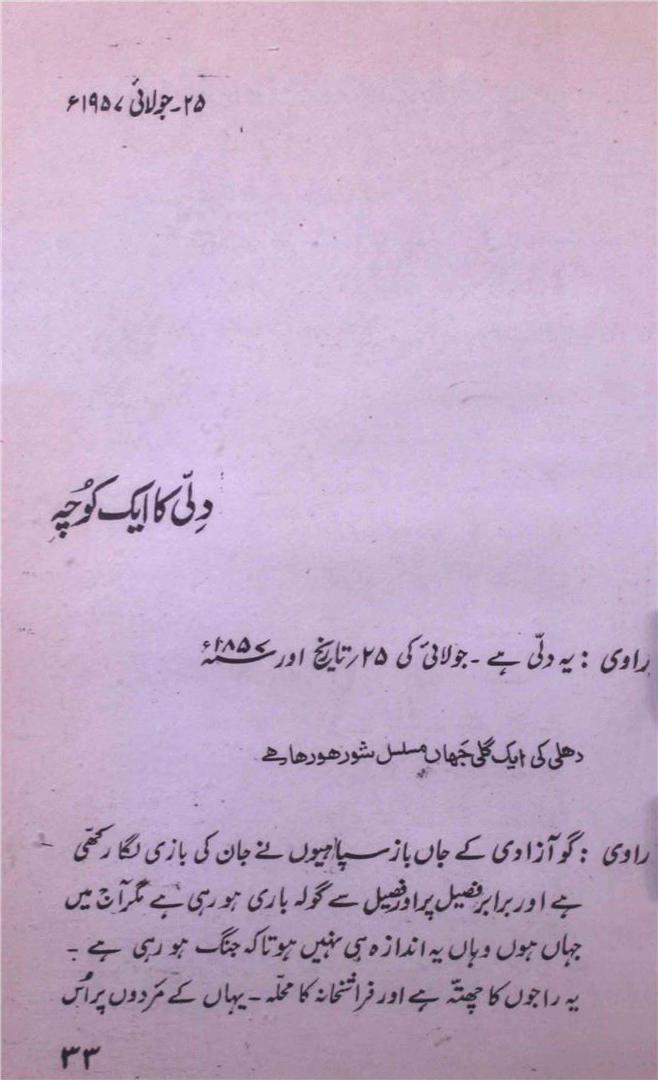 ۲۵۔ جولائی ۱۹۵۷ء
دِلّی کا ایک کُوچہ
راوی : یہ دلّی ہے ۔ جولائی کی ۲۵؍ تاریخ اور ۱۸۵۷ء
دھلی کی ایک گلی جَہاں مسلسل شور ھو رھا ھے
راوی : گو آزادی کے جاں باز سپاہیوں نے جان کی بازی لگا رکھّی
ہے اور برابر فصیل پر اور فصیل سے گولہ باری ہو رہی ہے مگر آج میں
جہاں ہوں وہاں یہ اندازہ ہی نہیں ہوتا کہ جنگ ہو رہی ہے ۔
یہ راجوں کا چھتّہ ہے اور فراشخانہ کا محلّہ ۔ یہاں کے مَردوں پر اُس
۳۳